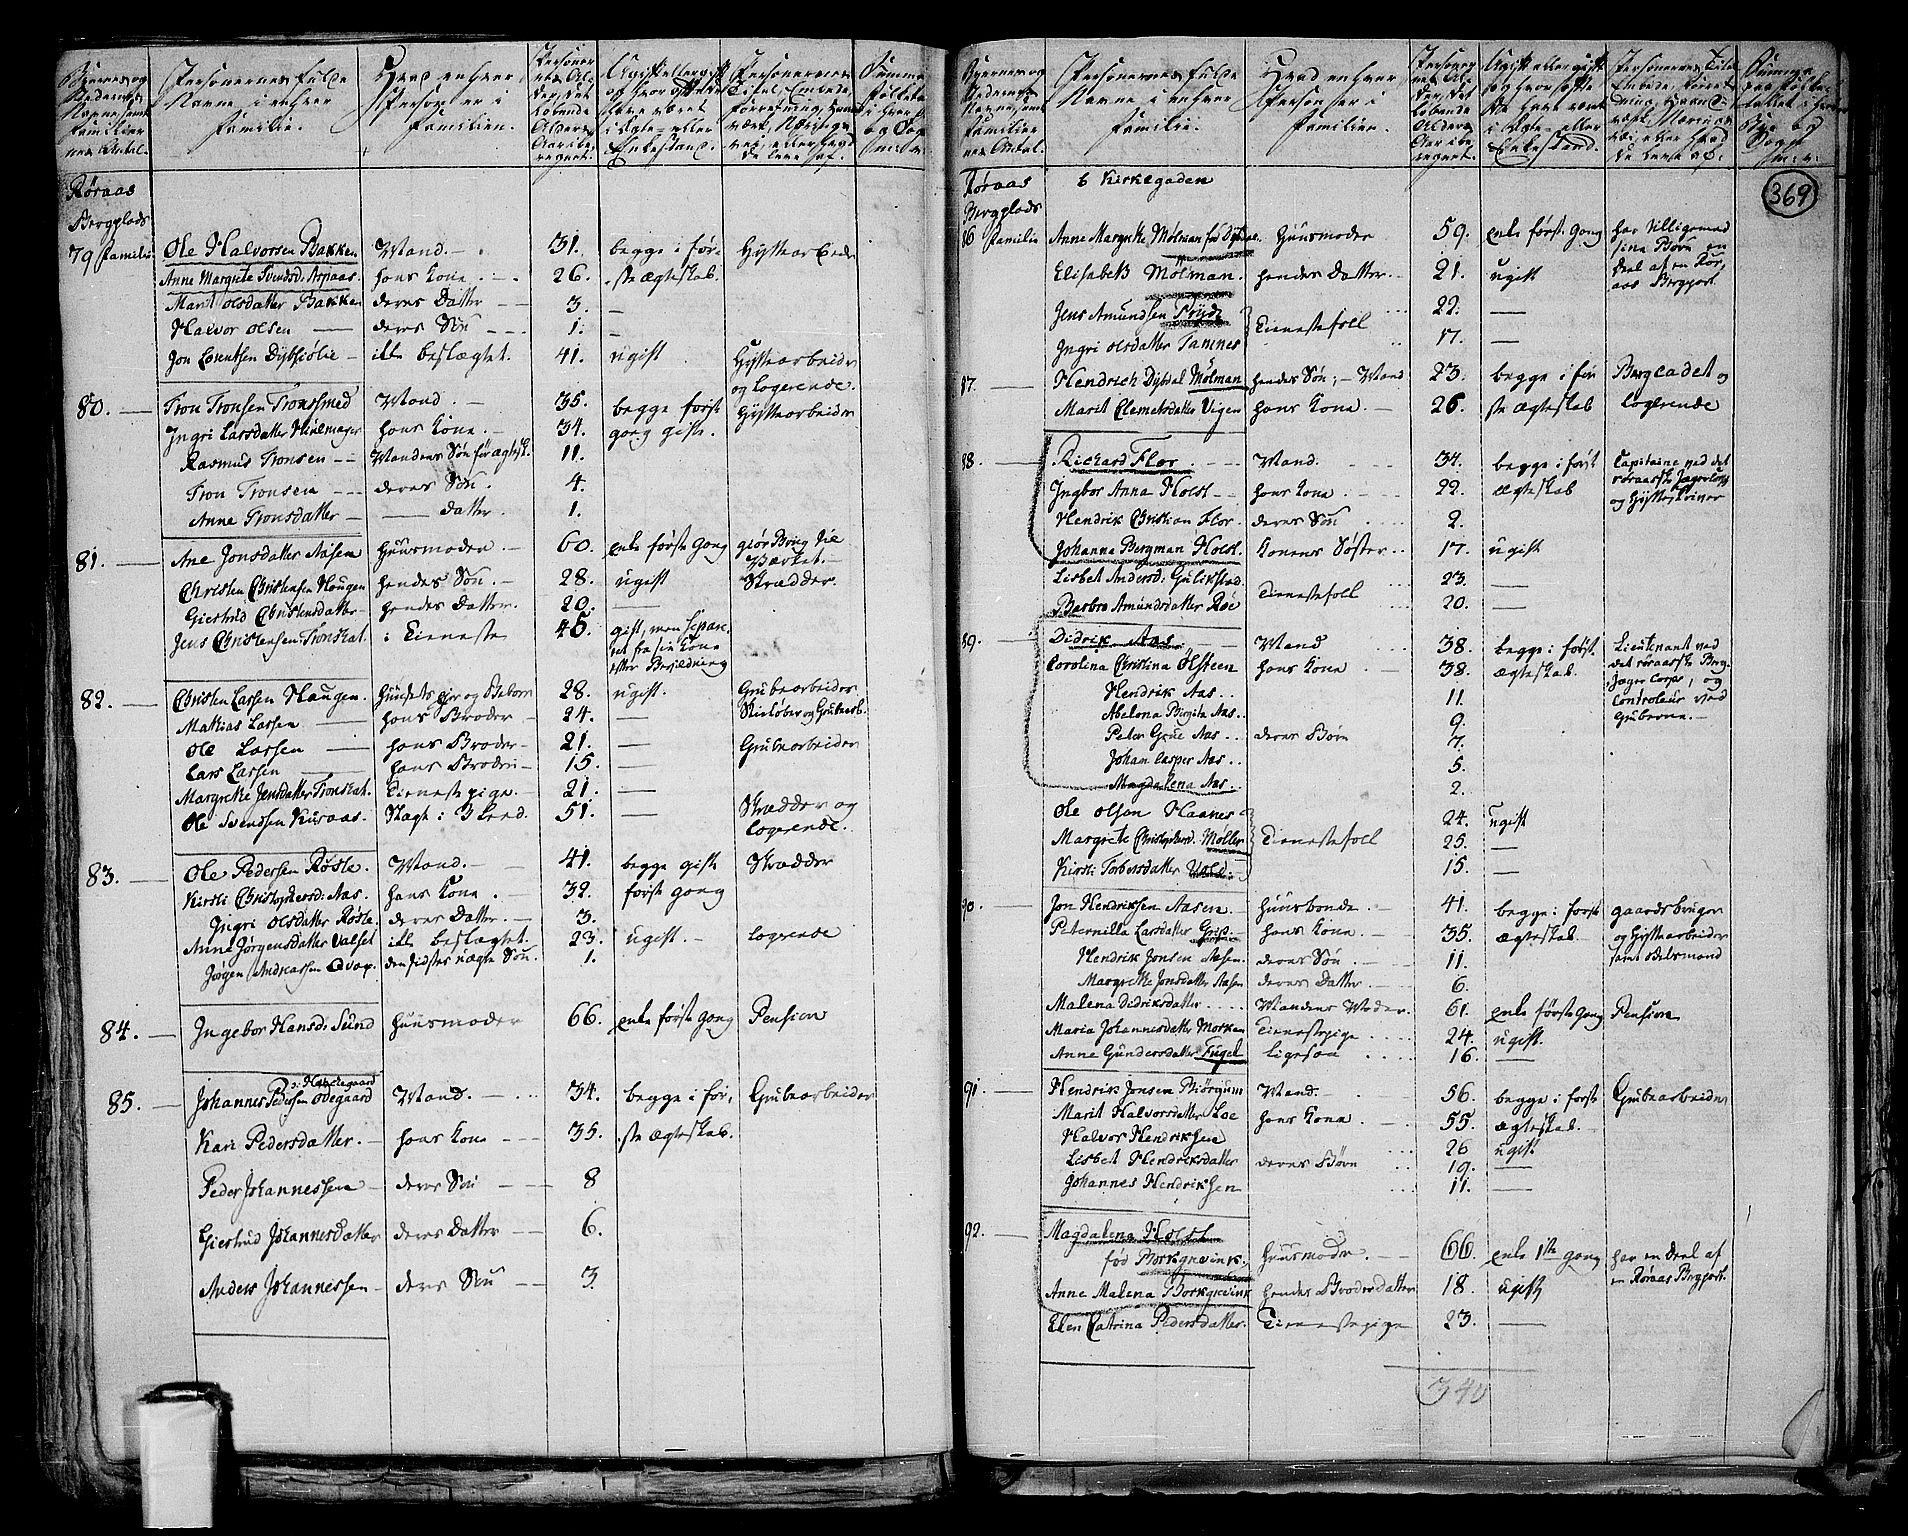 Personernes fulde Navne i enhver Familie.
Hvad enhver Person er i Familien.
Røraas
Bergplads
79 Familie Ole Halvorsen Bakken Mand. 31. begge i før- Hyttearbeider
Anne Margrete Svendsd. Aspaas hans Kone 26. ste ægteskab.
Marit Olsdatter Bakken deres Datter 3. —
Halvor Olsen deres Søn 1. —
Jon Lorentsen Dybsiølie ikke beslægtet. 41. ugift Hyttearbeider
og Logerende.
80. Tron Tronsen Tronssmed Mand. 35. begge først Hyttearbeider
Ingri Larsdatter hans Kone. 34. gang gift.
Rasmus Tronsen Mandens Søn før ægtesk. 11.
Tron Tronsen deres Søn. 4.
Anne Tronsdatter — Datter. 1.
81. Ane Jonsdatter Aasen Huusmoder 60. enke første Gang giør Brug til
Værket.
Christen Christensen Hougen hendes Søn. 28. ugift Skrædder.
Giertrud Christensdatter hendes Datter. 20. —
Jens Christensen Tronskat. i Tieneste 45. gift, men separe-
ret fra sin Kone
efter Bevildning
82. Christen Larsen Haugen. Huusets Eier og Beboer 28. ugift. Grubearbeider
Mathias Larsen hans Broder 24. —
Ole Larsen hans Broder 21. — Grubearbeider
Lars Larsen hans Broder 15. —
Margrethe Jensdatter Tronskat. Tienestepige. 21. —
Ole Svendsen Kuraas. Slægt i 3 Leed. 51. — Skrædder og
Logerende.
83. Ole Pedersen Røste. Mand. 41. begge gift Skrædder
Kirsti Christophersd. Aas. hans Kone. 32. første gang
Ingri Olsdatter Røste. deres Datter. 3.
Anne Jørgensdatter Valset ikke beslægtet. 23. ugift. Logerende
Jørgen Andreassen Qvap. den sidstes uægte Søn. 1.
84. Ingebor Hansd. Sund Huusmoder 66. enke første Gang Pension
85. Johannes Pedersen Ødegaard Mand. 34. begge i før- Grubearbeider
Kari Pedersdatter. hans Kone 35. ste ægteskab.
Peder Johannessen deres Søn 8
Giertrud Johannesdatter deres Datter 6.
Anders Johannessen deres Søn 3.
Personernes fulde Navne i enhver Familie.
Hvad enhver Person er i Familien.
369
Røraas 6 Kirkegaden
Bergplads
86 Familie Anne Margrethe Molman fød Dybdal. Huusmoder 59. enke først. Gang har tilligemed
sine Børn en
Deel af en Rør-
aas Bergpart.
Elisabeth Molman. hendes Datter. 21. ugift
Jens Amundsen Prydz Tienestefolk 22. —
Ingri Olsdatter Tamnes 17. —
87. Hendrich Dybdal Molman hendes Søn, — Mand 23. begge i før- Bergcadet og
Marit Clemetsdatter Vigen hans Kone. 26. ste ægteskab Logerende
88. Richard Flor Mand. 34. begge i først Capitaine ved det
røraaske Jægercorps
og Hytteskriver
Ingbor Anna Holst hans Kone. 22. ægteskab
Hendrik Christian Flor. deres Søn 2.
Johanna Bergman Holst. Konens Søster. 17. ugift
Lisbet Andersd. Gulikstad Tienestefolk 23. —
Berbro Amundsdatter Roe 20. —
89. Didrik Aas. Mand 38. begge i først Lieutenant ved
det røraaske Berg-
Jæger Corps, og
Controleur ved
Gruberne.
Carolina Christina Olsteen hans Kone 38. ægteskab.
Hendrik Aas 11.
Abelona Birgita Aas 9.
Peter Grue Aas deres Børn 7.
Johan Casper Aas 5.
Magdalena Aas 2.
Ole Olsen Haanes 24. ugift
Margrete Christophersd. Møller. Tienestefolk 25. —
Kirsti Torbersdatter Vold. 15. —
90. Jon Hendriksen Aasen. Huusbonde. 41. begge i først gaardsbruger
Peternilla Larsdatter Grip. hans Kone. 35. ægteskab. og Hyttearbeider
samt Odelsmand
Hendrik Jonsen Aasen. deres Søn 11.
Margrethe Jonsdatter Aasen deres Datter 6.
Malena Didriksdatter Mandens Moder. 61. enke første Gang Pension
Maria Johannesdatter Morken Tienestepige 24. ugift.
Anne Gundersdatter Fugel ligesaa 16. —
91. Hendrik Jonsen Biørgum Mand. 56. begge i først Grubearbeider
Marit Halvorsdatter Loe hans Kone 55. ægteskab.
Halvor Hendriksen 26 ugift
Lisbet Hendriksdatter deres Børn 19. —
Johannes Hendriksen 11. —
92. Magdalena Holst
fød Borkgrevink. Huusmoder. 66. enke 1ste gang har en Deel af
en Røraas Bergpart.
Anne Malena Borkgrevink hendes Broderdatter 18. ugift
Elen Catrina Pedersdatter. Tienestepige 23. —
340